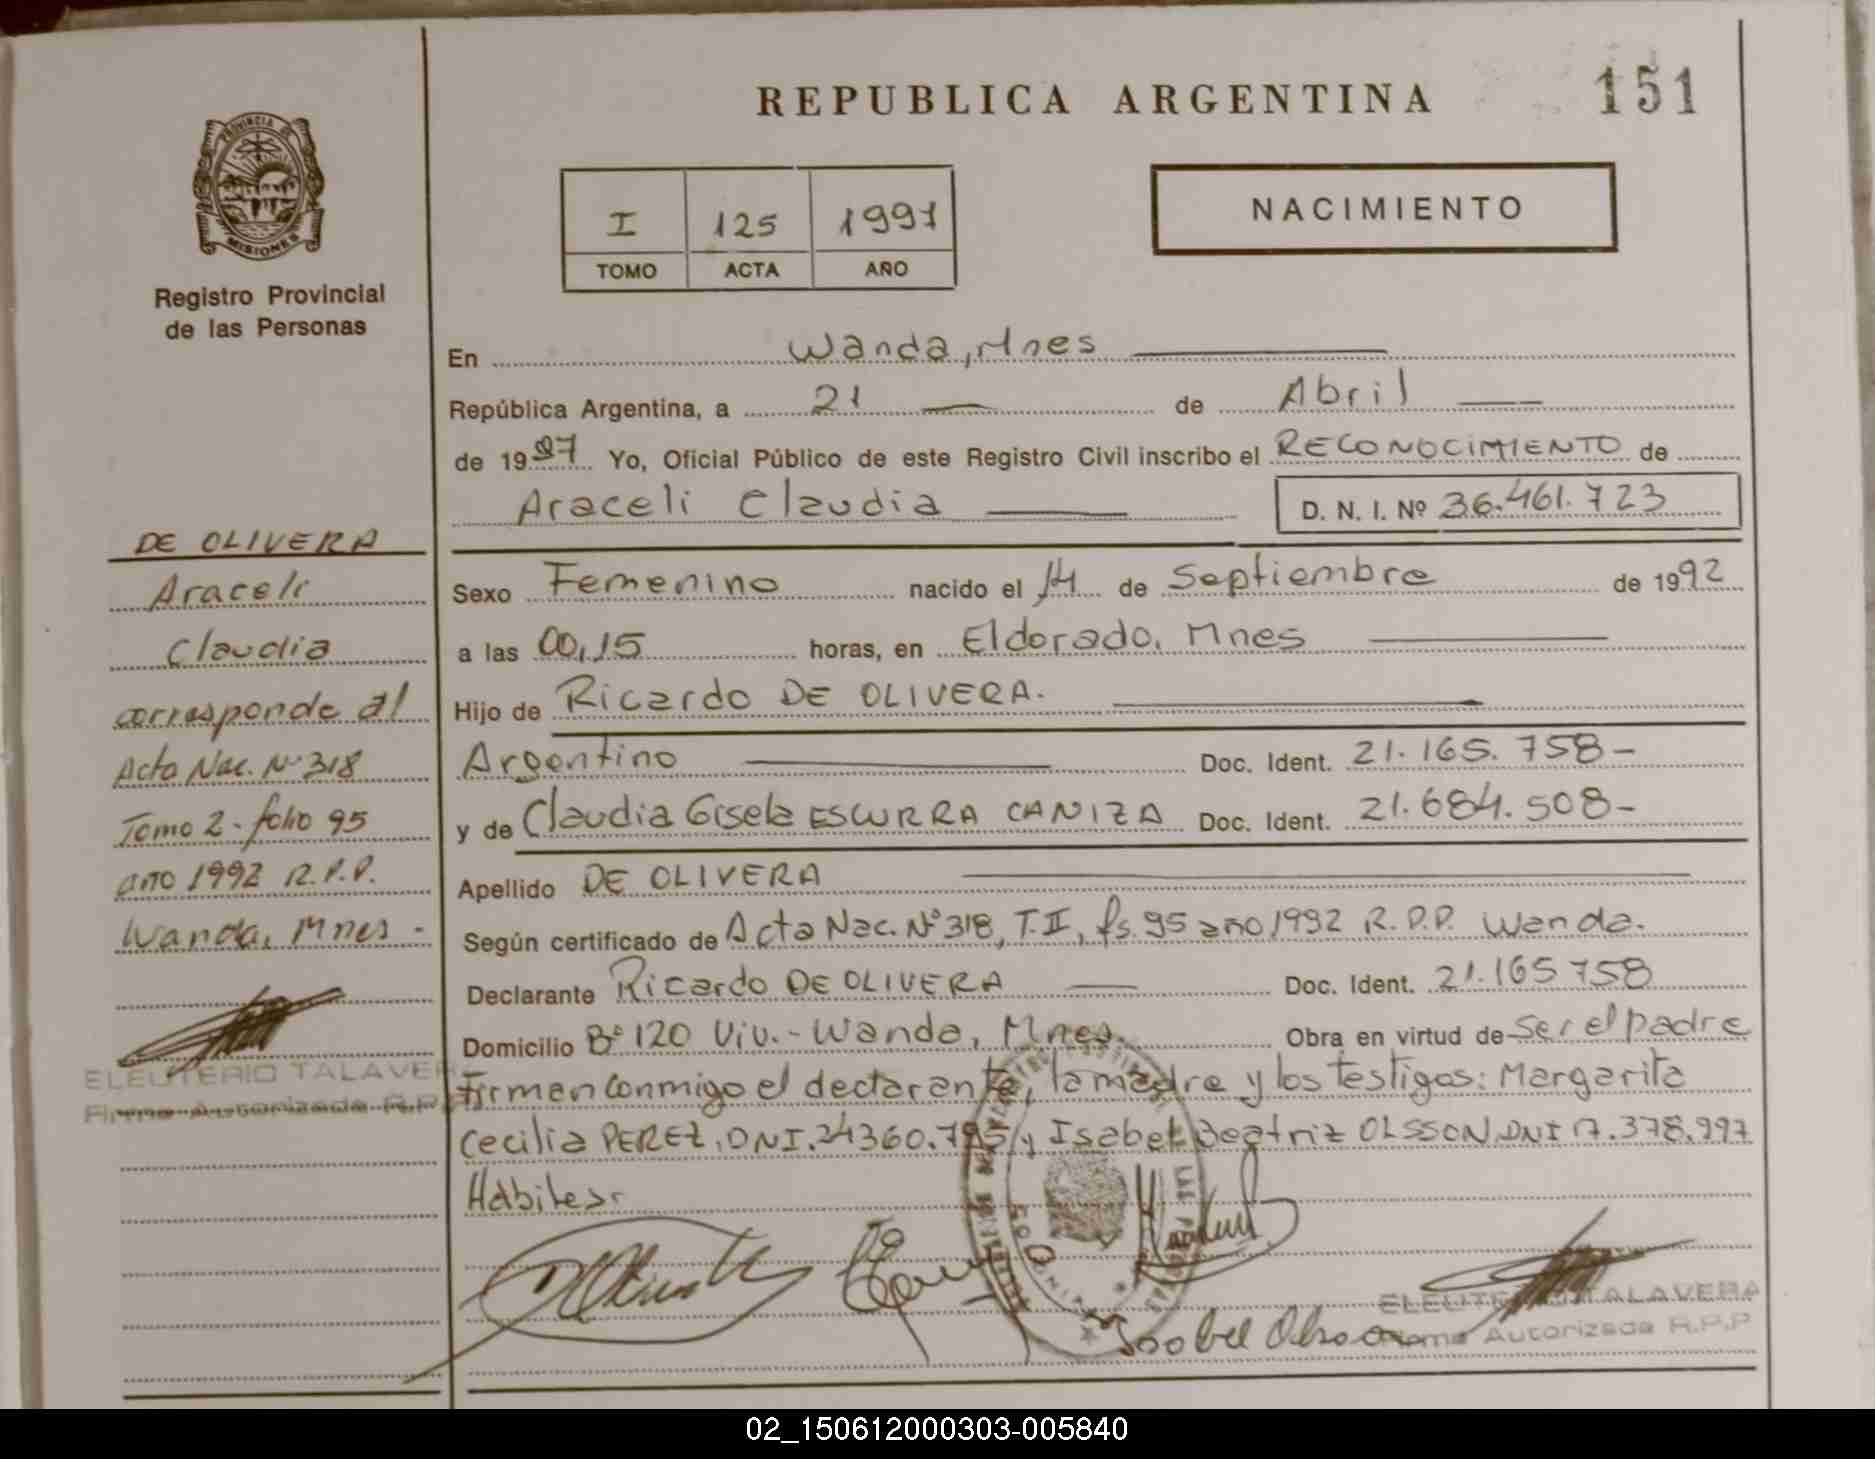 REPUBLICA ARGENTINA
151
PROVINCIA DE
MISIONES
Registro Provincial
de las Personas
I 125 1997
TOMO ACTA AÑO
NACIMIENTO
En Wanda, Mnes
República Argentina, a 21 de Abril
de 1997 Yo, Oficial Público de este Registro Civil inscribo el RECONOCIMIENTO de
Araceli Claudia D. N. I. Nº 36.461.723
Sexo Femenino nacido el 14 de Septiembre de 1992
a las 00,15 horas, en Eldorado, Mnes
Hijo de Ricardo DE OLIVERA.
Argentino Doc. Ident. 21.165.758-
y de Claudia Gisela ESCURRA CANIZA Doc. Ident. 21.684.508-
Apellido DE OLIVERA
Según certificado de Acta Nac. Nº 318, T. II, fs. 95 año 1992 R.P.P. Wanda.
Declarante Ricardo DE OLIVERA Doc. Ident. 21.165758
Domicilio Bº 120 Viv.- Wanda, Mnes. Obra en virtud de ser el padre
Firman conmigo el declarante, la madre y los testigos: Margarita
Cecilia PEREZ, DNI. 24360.795 y Isabel Beatriz OLSSON DNI 17.378.997
Habiles.
DE OLIVERA
Araceli
Claudia
corresponde al
Acta Nac. Nº 318
Tomo 2 - folio 95
año 1992 R.P.P.
Wanda, Mnes -
ELEUTERIO TALAVERA
Firma Autorizada R.P.P
Isabel
ELEUTERIO TALAVERA
Firma Autorizada R.P.P
02_150612000303-005840